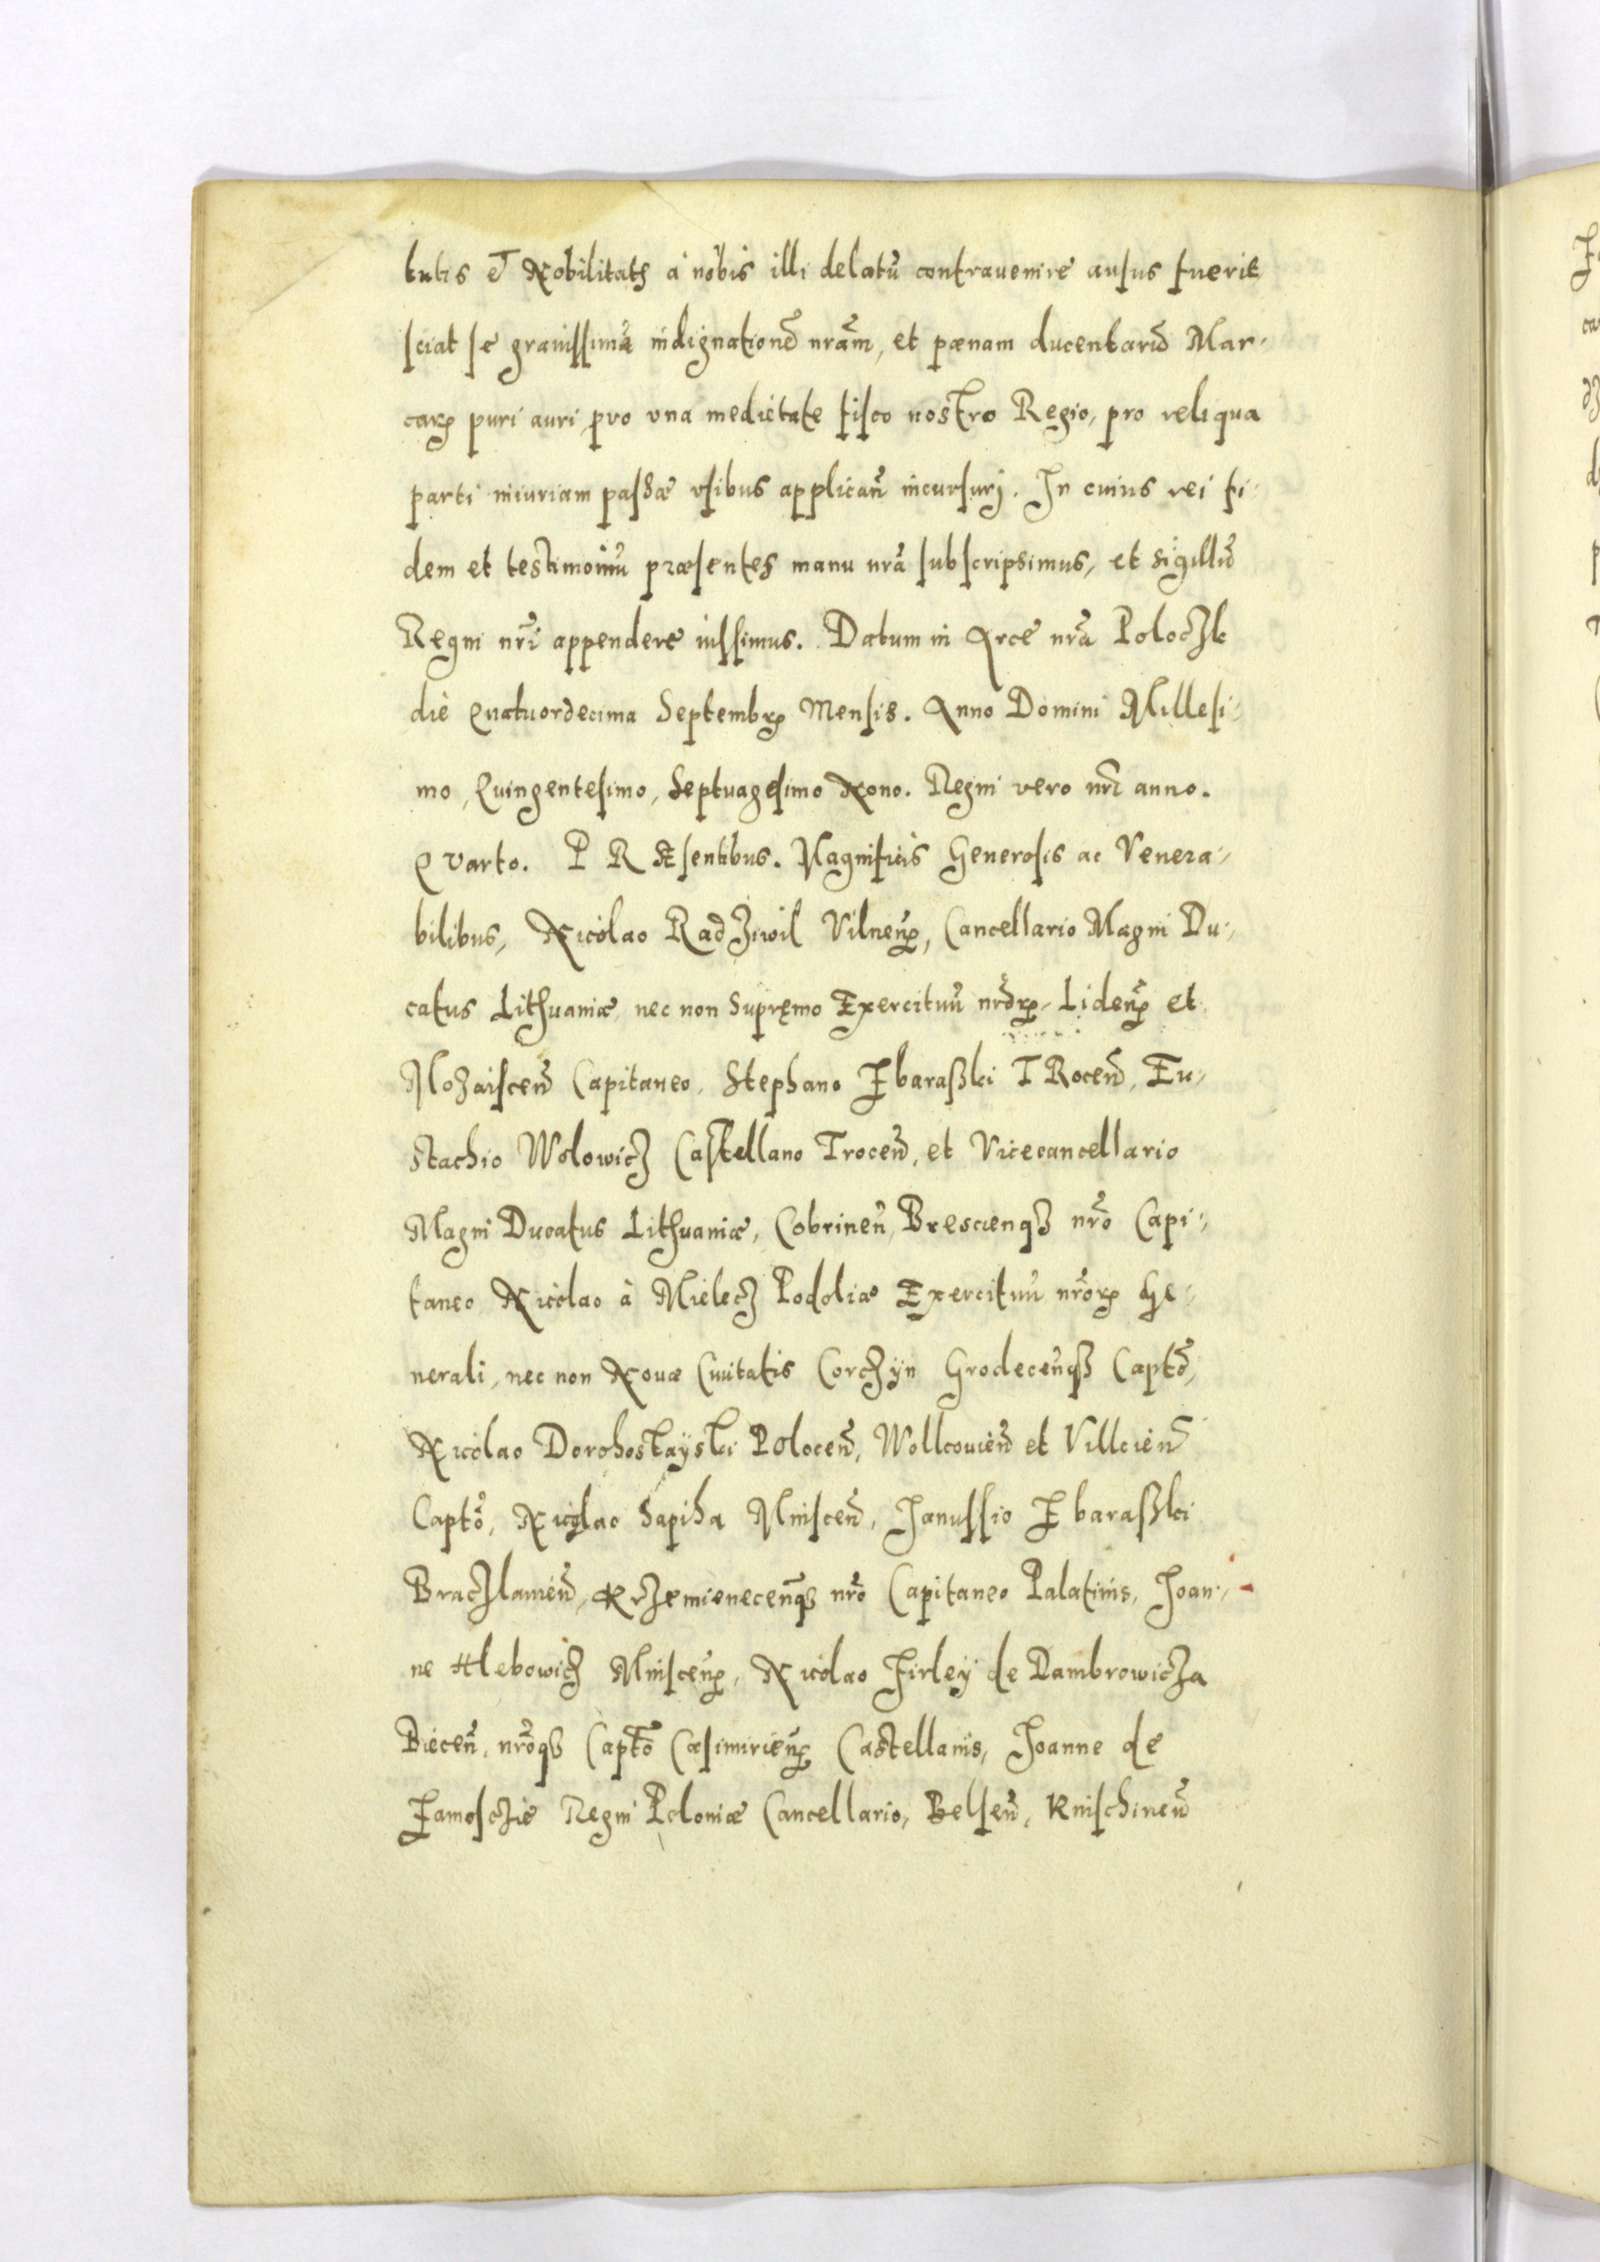 tutis et Nobilitatis à nobis illi delatũ contrauenire ausus fuerit
sciat se grauissimã indignationẽ nr̃am, et pœnam ducentarũ Mar-
carꝝ puri auri, pro vna medietate fisco nostro Regio, pro reliqua
parti iniuriam passæ vsibus applicañ incursurĩ. In cuius rei fi-
dem et testimoniũ præsentes manu nr̃a subscripsimus, et sigillũ
Regni nr̃i appendere iussimus. Datum in Arce nr̃a Poloczk
die Quatuordecima Septembrꝫ Mensis. Anno Domini Millesi-
mo, Quingentesimo, Septuagesimo Nono. Regni vero nr̃i anno.
Qvarto. PRÆsentibus. Magnificis Generosis ac Venera-
bilibus, Nicolao Radziwil Vilneñ, Cancellario Magni Du-
catus Lithuaniæ, nec non Supręmo Exercituũ nr̃orꝝ, Lideñ et
Mozaisceñ Capitaneo, Stephano Zbaraßki TRoceñ, Eu-
stachio Wolowicz Castellano Troceñ, et Vicecancellario
Magni Ducatus Lithuaniæ, Cobrineñ, Brescienqꝫ nr̃o Capi-
taneo Nicolao à Mielecz Podoliæ Exercituũ nr̃orꝝ Ge-
nerali, nec non Nouæ Ciuitatis Corczÿn Grodeceñqꝫ Captõ,
Nicolao Dorohostaÿski Poloceñ, Wolkouieñ et Vilkieñ
Captõ, Nicolao Sapiha Minsceñ, Janussio Zbaraßki
Braczlauieñ, Krzemieneceñqꝫ nr̃o Capitaneo Palatinis, Joan-
ne Hlebowicz Minsceñ, Nicolao Firleÿ de Dambrowicza
Bieceñ, nr̃oqꝫ Captõ Casimirieñ Castellanis, Joanne de
Zamosczie Regni Poloniæ Cancellario, Belseñ, Knischineñ